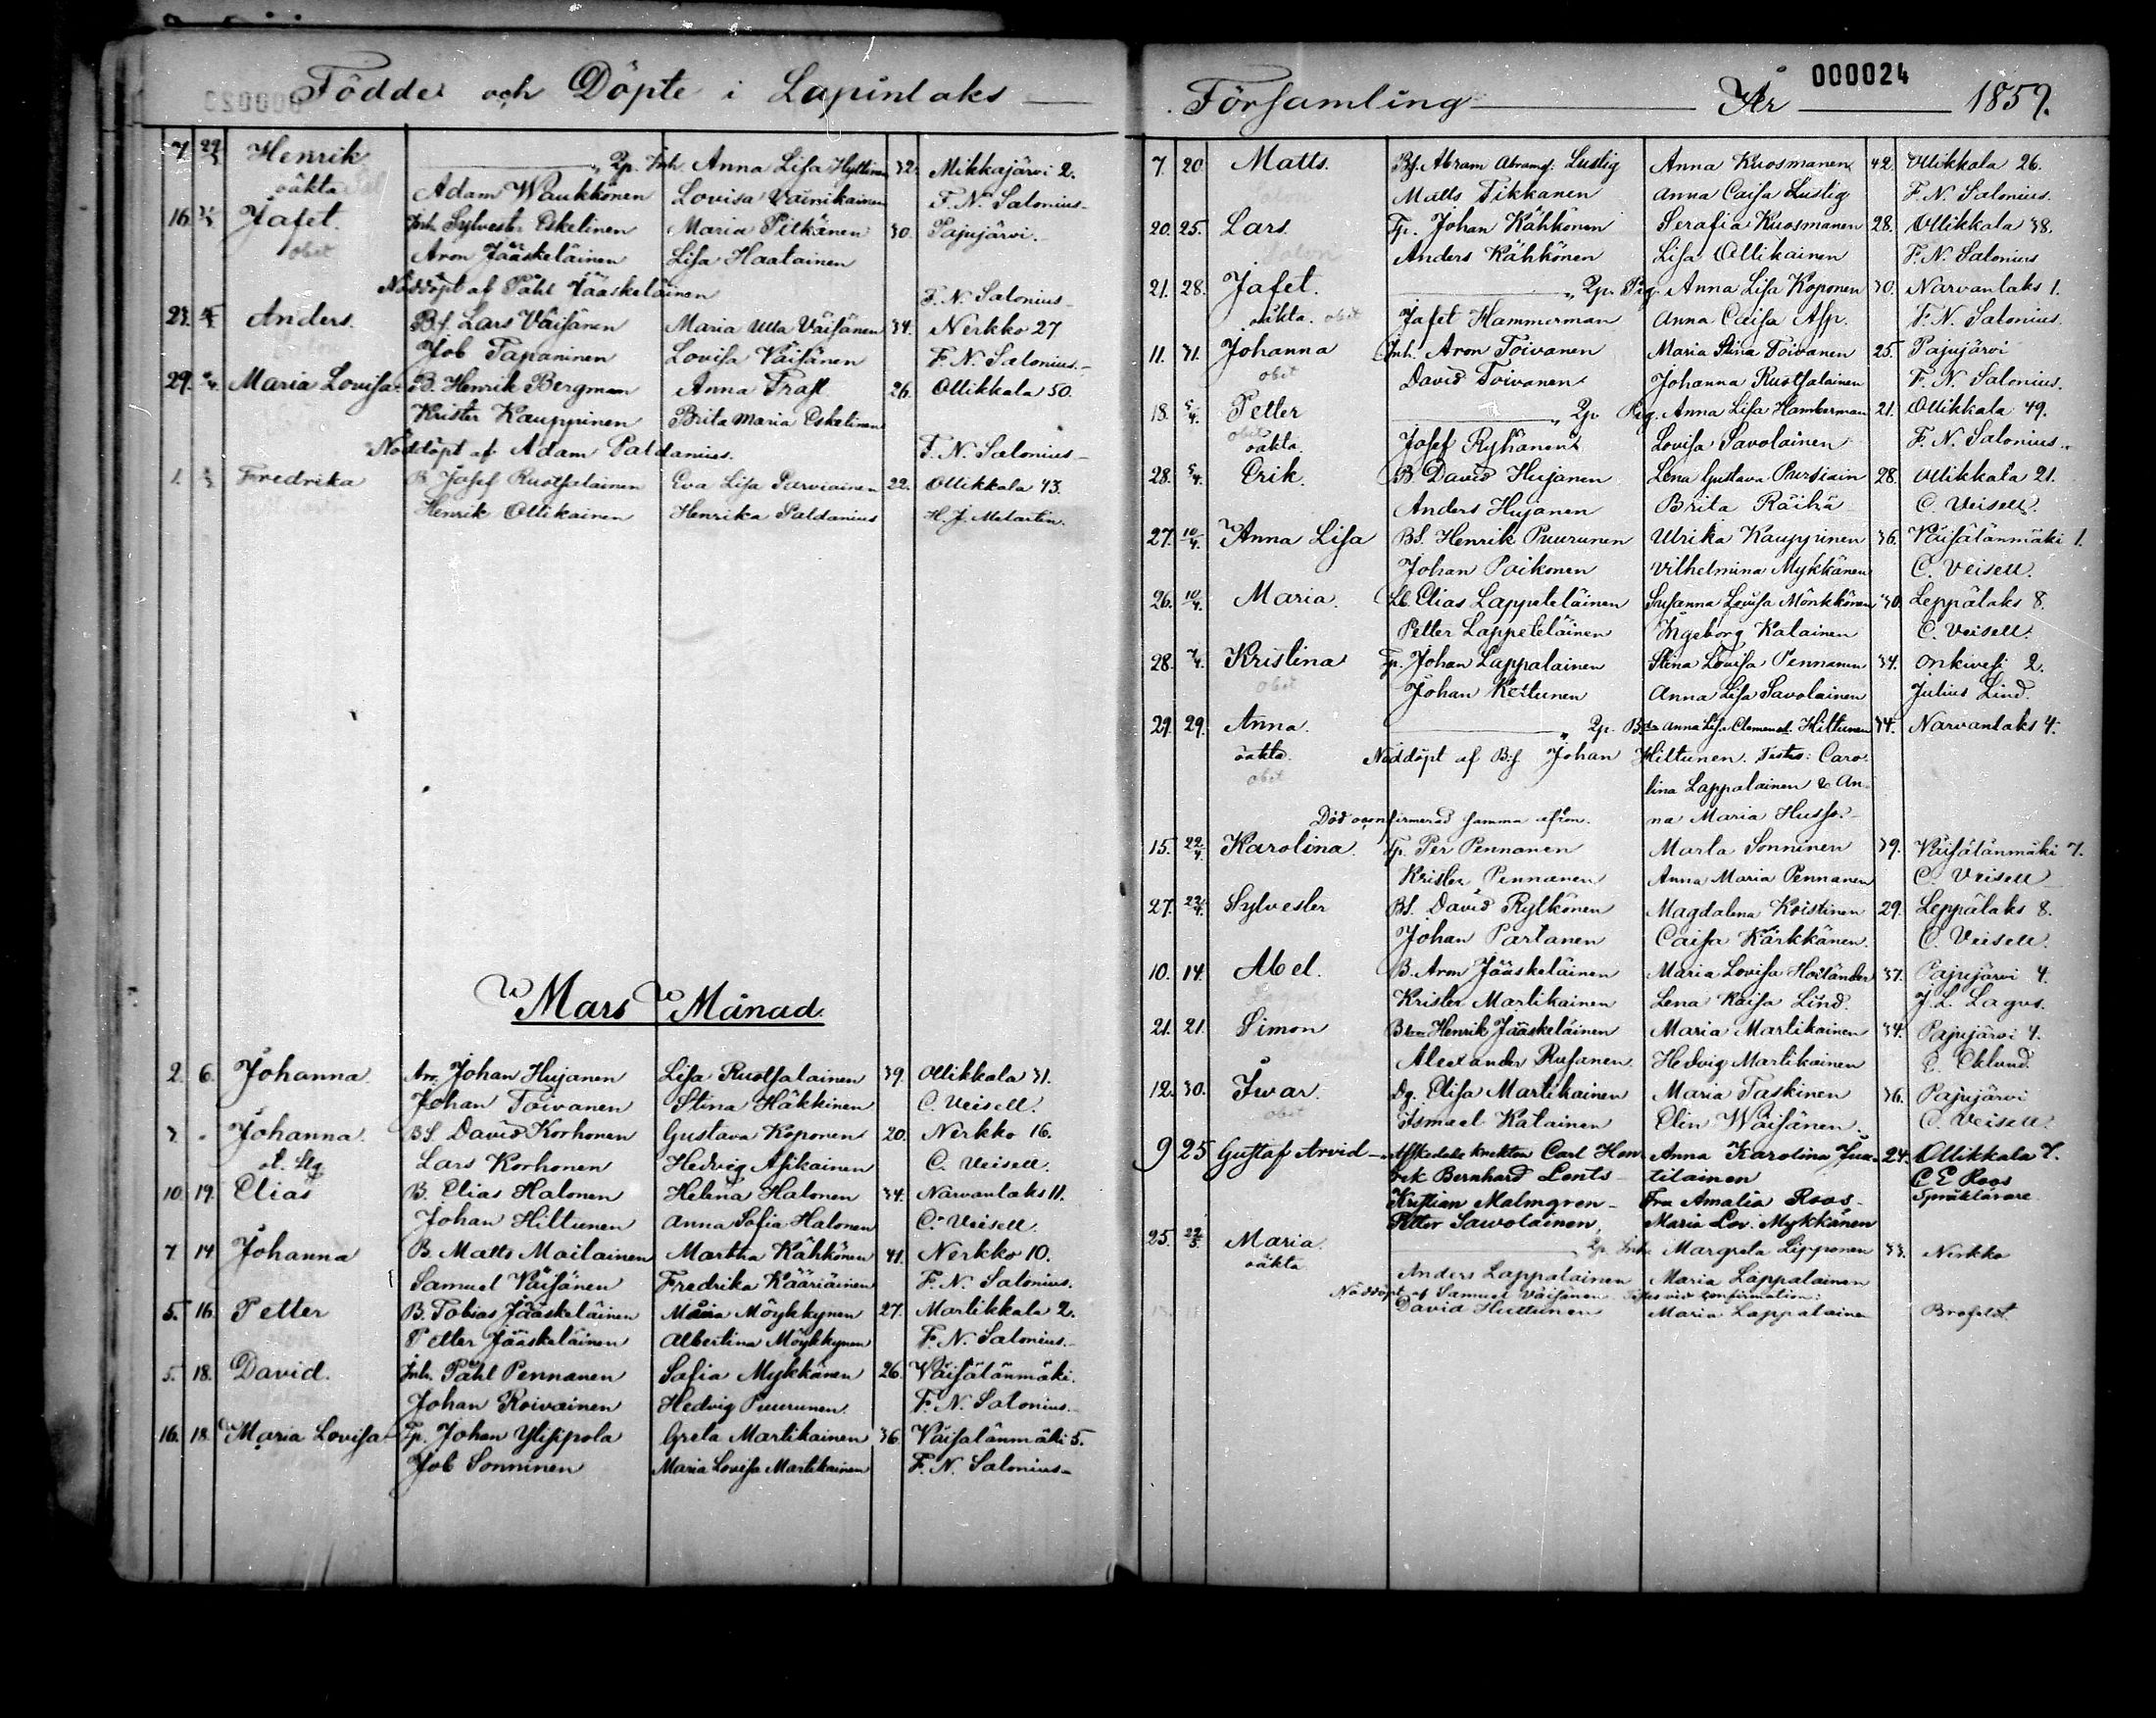 Födde och Döpte i Lapinlaks
7. Henrik Qp. Inh. Anna Lisa Hyttinen 32. Mikkajärvi 2.
oäkta Adam Waukkonen Lovisa Väinikainen F. N. Salonius
16. Jafet. Inh. Sylvester Eskelinen Maria Pitkänen 30. Pajujärvi
obit Aron Jääskeläinen Lisa Haatainen
Nöddöpt af Påhl Jääskeläinen F. N. Salonius
23. Anders. Bf. Lars Väisänen Maria Ulla Väisänen 34. Nerkko 27
Job Tapaninen Lovisa Väisänen F. N. Salonius
29. Maria Lovisa B. Henrik Bergman Anna Trast 26. Ollikkala 50.
Krister Kauppinen Brita Maria Eskelinen
Nöddöpt af Adam Paldanius. F. N. Salonius
1. Fredrika B. Josef Ruotsalainen Eva Lisa Parviainen 22. Ollikkala 43.
Henrik Ollikainen Henrika Paldanius H. J. Melartin.
Mars Månad.
2. 6. Johanna. Arr. Johan Hujanen Lisa Ruotsalainen 39. Ollikkala 31.
Johan Toivanen Stina Häkkinen C. Veisell.
3. " Johanna. BS. David Korhonen Gustava Koponen 20. Nerkko 16.
Lars Korhonen Hedvig Asikainen C. Veisell.
10. 19. Elias B. Elias Halonen Helena Halonen 34. Narvanlaks 11.
Johan Hiltunen Anna Sofia Halonen C. Veisell.
7. 14 Johanna B. Matts Mailainen Martha Kähkönen 41. Nerkko 10.
Samuel Väisänen Fredrika Kääriäinen F. N. Salonius.
5. 16. Petter B. Tobias Jääskeläinen Maria Möykkynen 27. Martikkala 2.
Petter Jääskeläinen Albertina Möykkynen F. N. Salonius.
5. 18. David. Inh. Påhl Pennanen Sofia Mykkänen 26. Väisälänmäki.
Johan Roivainen Hedvig Puurunen. F. N. Salonius.
16. 18. Maria Lovisa Tp. Johan Ylisipola Greta Martikainen 36. Väisälänmäki 5.
Job Sonninen Maria Lovisa Martikainen F. N. Salonius
000024
Församling År 1859.
7. 20 Matts. Bf. Abram Abramss. Lustig Anna Kuosmanen 42. Ollikkala 26.
Matts Tikkanen Anna Caisa Lustig F. N. Salonius.
20. 25. Lars. Tp. Johan Kähkönen Serafia Kuosmanen 28. Ollikkala 38.
Anders Kähkönen Lisa Ollikainen F. N. Salonius
21. 28. Jafet. Qp. Pig. Anna Lisa Koponen 30. Narvanlaks 1.
oäkta. obit Jafet Hammerman Anna Caisa Asp. F. N. Salonius.
11. 31. Johanna Inh. Aron Toivanen Maria Stina Toivanen 25. Pajujärvi
obit David Toivanen Johanna Ruotsalainen F. N. Salonius.
18. 5/4. Petter Qp Pig. Anna Lisa Hamberman 21. Ollikkala 49.
obit oäkta. Josef Ryhänen Lovisa Savolainen F. N. Salonius.
28. 5/4. Erik. B. David Hujanen Lena Gustava Pursiain 28. Ollikkala 21.
Anders Hujanen Brita Räihä C. Veisell.
27. 10/4. Anna Lisa BS. Henrik Puurunen Ulrika Kauppinen 36. Väisälänmäki 1.
Johan Poikonen Vilhelmina Mykkänen C. Veisell.
26. 10/4. Maria. Lb. Elias Lappeteläinen Susanna Lovisa Mönkkönen 30. Leppälaks 8.
Petter Lappeteläinen Ingeborg Katainen C. Veisell.
28. 7/4. Kristina Tp. Johan Lappalainen Stina Lovisa Pennanen 34. Onkivesi 2.
obit Johan Kettunen Anna Lisa Savolainen Julius Lind.
29. 29. Anna. Qp. Anna Lisa Clemensd. Hiltunen 34. Narvanlaks 4.
oäkta. Nöddöpt af B:f Johan Hiltunen. Testes: Caro-
obit lina Lappalainen & An-
Död oconfirmerad samma afton. na Maria Husso.
15. 22/4. Karolina. Tp. Per Pennanen Marta Sonninen 39. Väisälänmäki 7.
Krister Pennanen Anna Maria Pennanen C. Veisell
27. 22/4. Sylvester BS. David Rytkönen Magdalena Koistinen 29. Leppälaks 8.
Johan Partanen Caisa Kärkkänen. C. Veisell.
10. 14. Abel. B. Aron Jääskeläinen Maria Lovisa Holländer 37. Pajujärvi 4.
Krister Martikainen Lena Kaisa Lind. J. L. Lagus.
21. 21. Simon Henrik Jääskeläinen Maria Martikainen 34. Pajujärvi 4.
Alexander Rusanen. Hedvig Martikainen Eklund.
12. 30. Iwar. Dg. Elisa Martikainen Maria Taskinen 36. Pajujärvi
obit Ismael Katainen Elin Wäisänen. C. Veisell.
9 25 Gustaf Arvid Carl Hen- Anna Karolina Juu- 24. Ollikkala 7.
rik Bernhard Lents- tilainen C E Roos
Kristian Malmgren Fru Amalia Roos Språklärare
Petter Sawolainen Maria Lov. Mykkänen
25. 22/5. Maria. Qp. Inh. Margreta Lipponen 33. Nerkko
oäkta Anders Lappalainen Maria Lappalainen
Nöddöpt af Samuel Väisänen. Testes vid confirmation:
David Huttunen Maria Lappalainen Brofeldt.